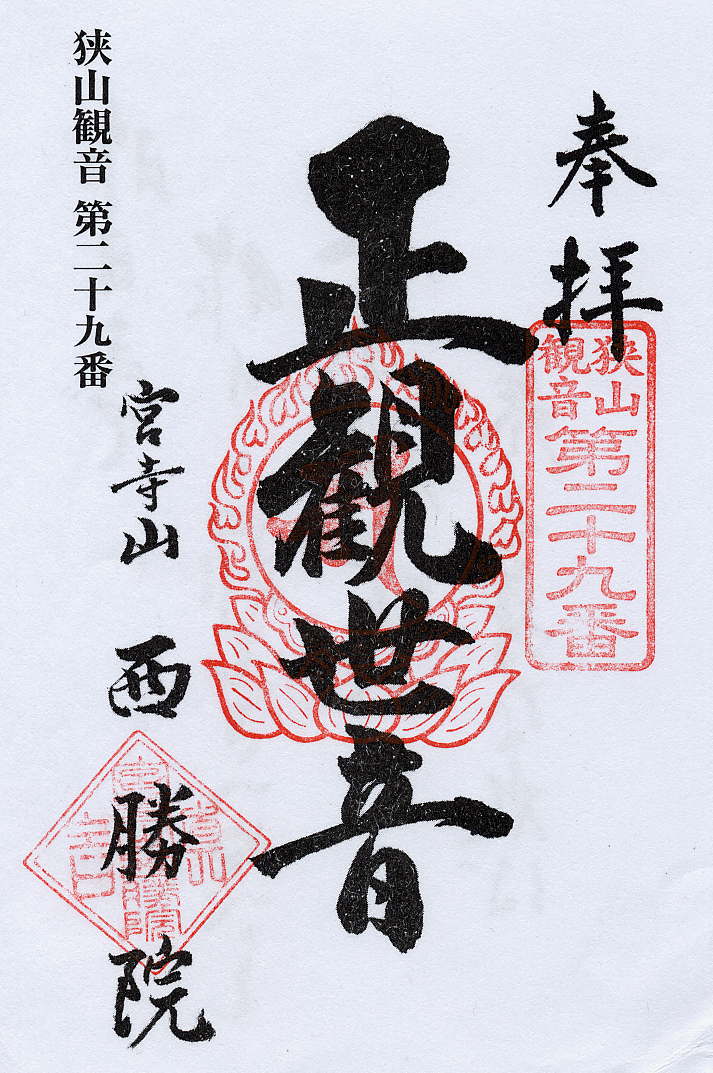 奉拝
狭山
観音
第二十九番
正観世音
狭山観音 第二十九番
宮寺山
西勝院